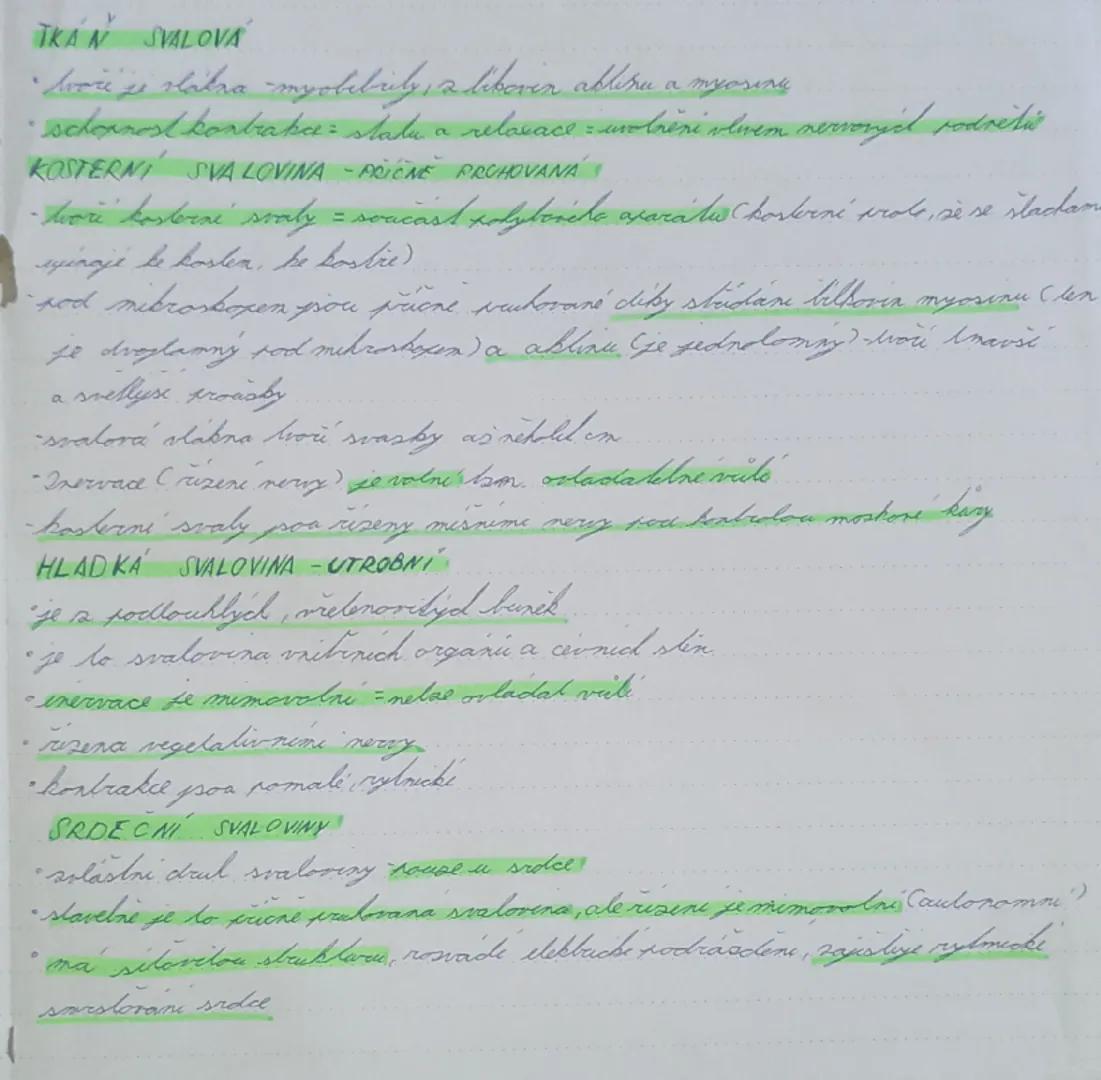 TKÁŇ SVALOVÁ
• tvoří je vlákna - myofibrily, z bílkovin aktinu a myosinu
• schopnost kontrakce = stahu a relaxace = uvolnění vlivem nervových podnětů
KOSTERNÍ SVALOVINA - PŘÍČNĚ PRUHOVANÁ
- tvoří kosterní svaly = součást pohybového aparátu (kosterní proto, že se šlacham
upínají ke kostem, ke kostře)
- pod mikroskopem jsou příčně pruhované díky střídání bílkovin myosinu (ten
je dvojlomný pod mikroskopem) a aktinu (je jednolomný) - tvoří tmavší
a světlejší proužky
- svalová vlákna tvoří svazky až několik cm
- Inervace (řízení nervy) je volní tzn. ovladatelné vůlí
- kosterní svaly jsou řízeny míšními nervy pod kontrolou mozkové kůry
HLADKÁ SVALOVINA - ÚTROBNÍ
• je z podlouhlých, vřetenovitých buněk
• je to svalovina vnitřních orgánů a cévních stěn
• inervace je mimovolní = nelze ovládat vůlí
• řízena vegetativními nervy
• kontrakce jsou pomalé, rytmické
SRDEČNÍ SVALOVINY
• zvláštní druh svaloviny - pouze u srdce
• stavebně je to příčně pruhovaná svalovina, ale řízení je mimovolní (autonomní)
• má síťovitou strukturu, rozvádí elektrické podráždění, zajišťuje rytmické
smršťování srdce